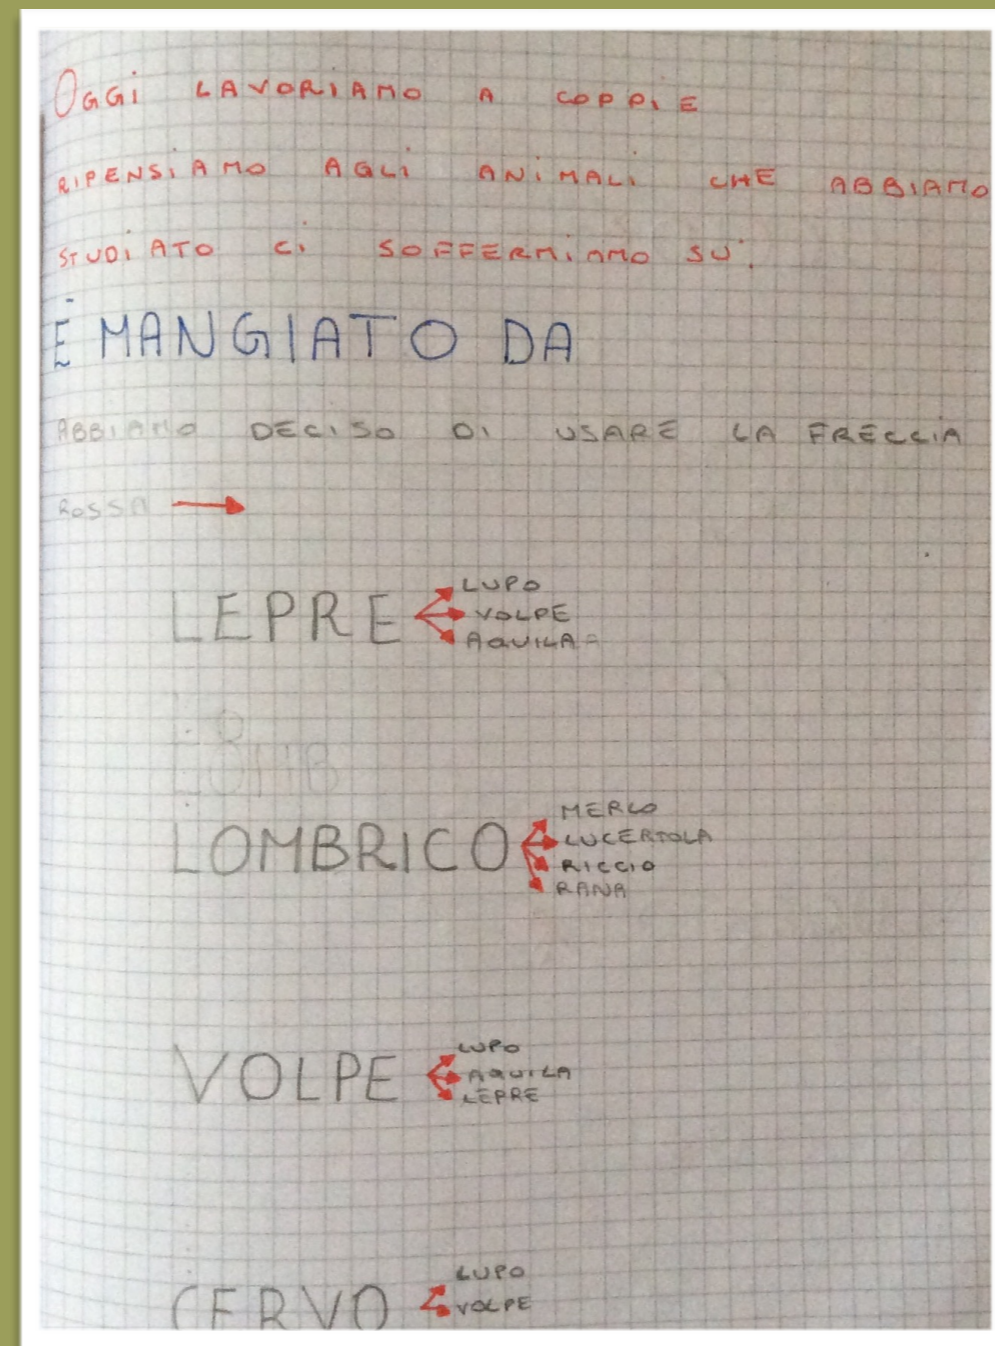 OGGI LAVORIAMO A COPPIE
RIPENSIAMO AGLI ANIMALI CHE ABBIAMO
STUDIATO CI SOFFERMIAMO SU:
È MANGIATO DA
ABBIAMO DECISO DI USARE LA FRECCIA
ROSSA →
LEPRE
LUPO
VOLPE
AQUILA
LOMB
LOMBRICO
MERLO
LUCERTOLA
RICCIO
RANA
VOLPE
LUPO
AQUILA
LEPRE
CERVO
LUPO
VOLPE